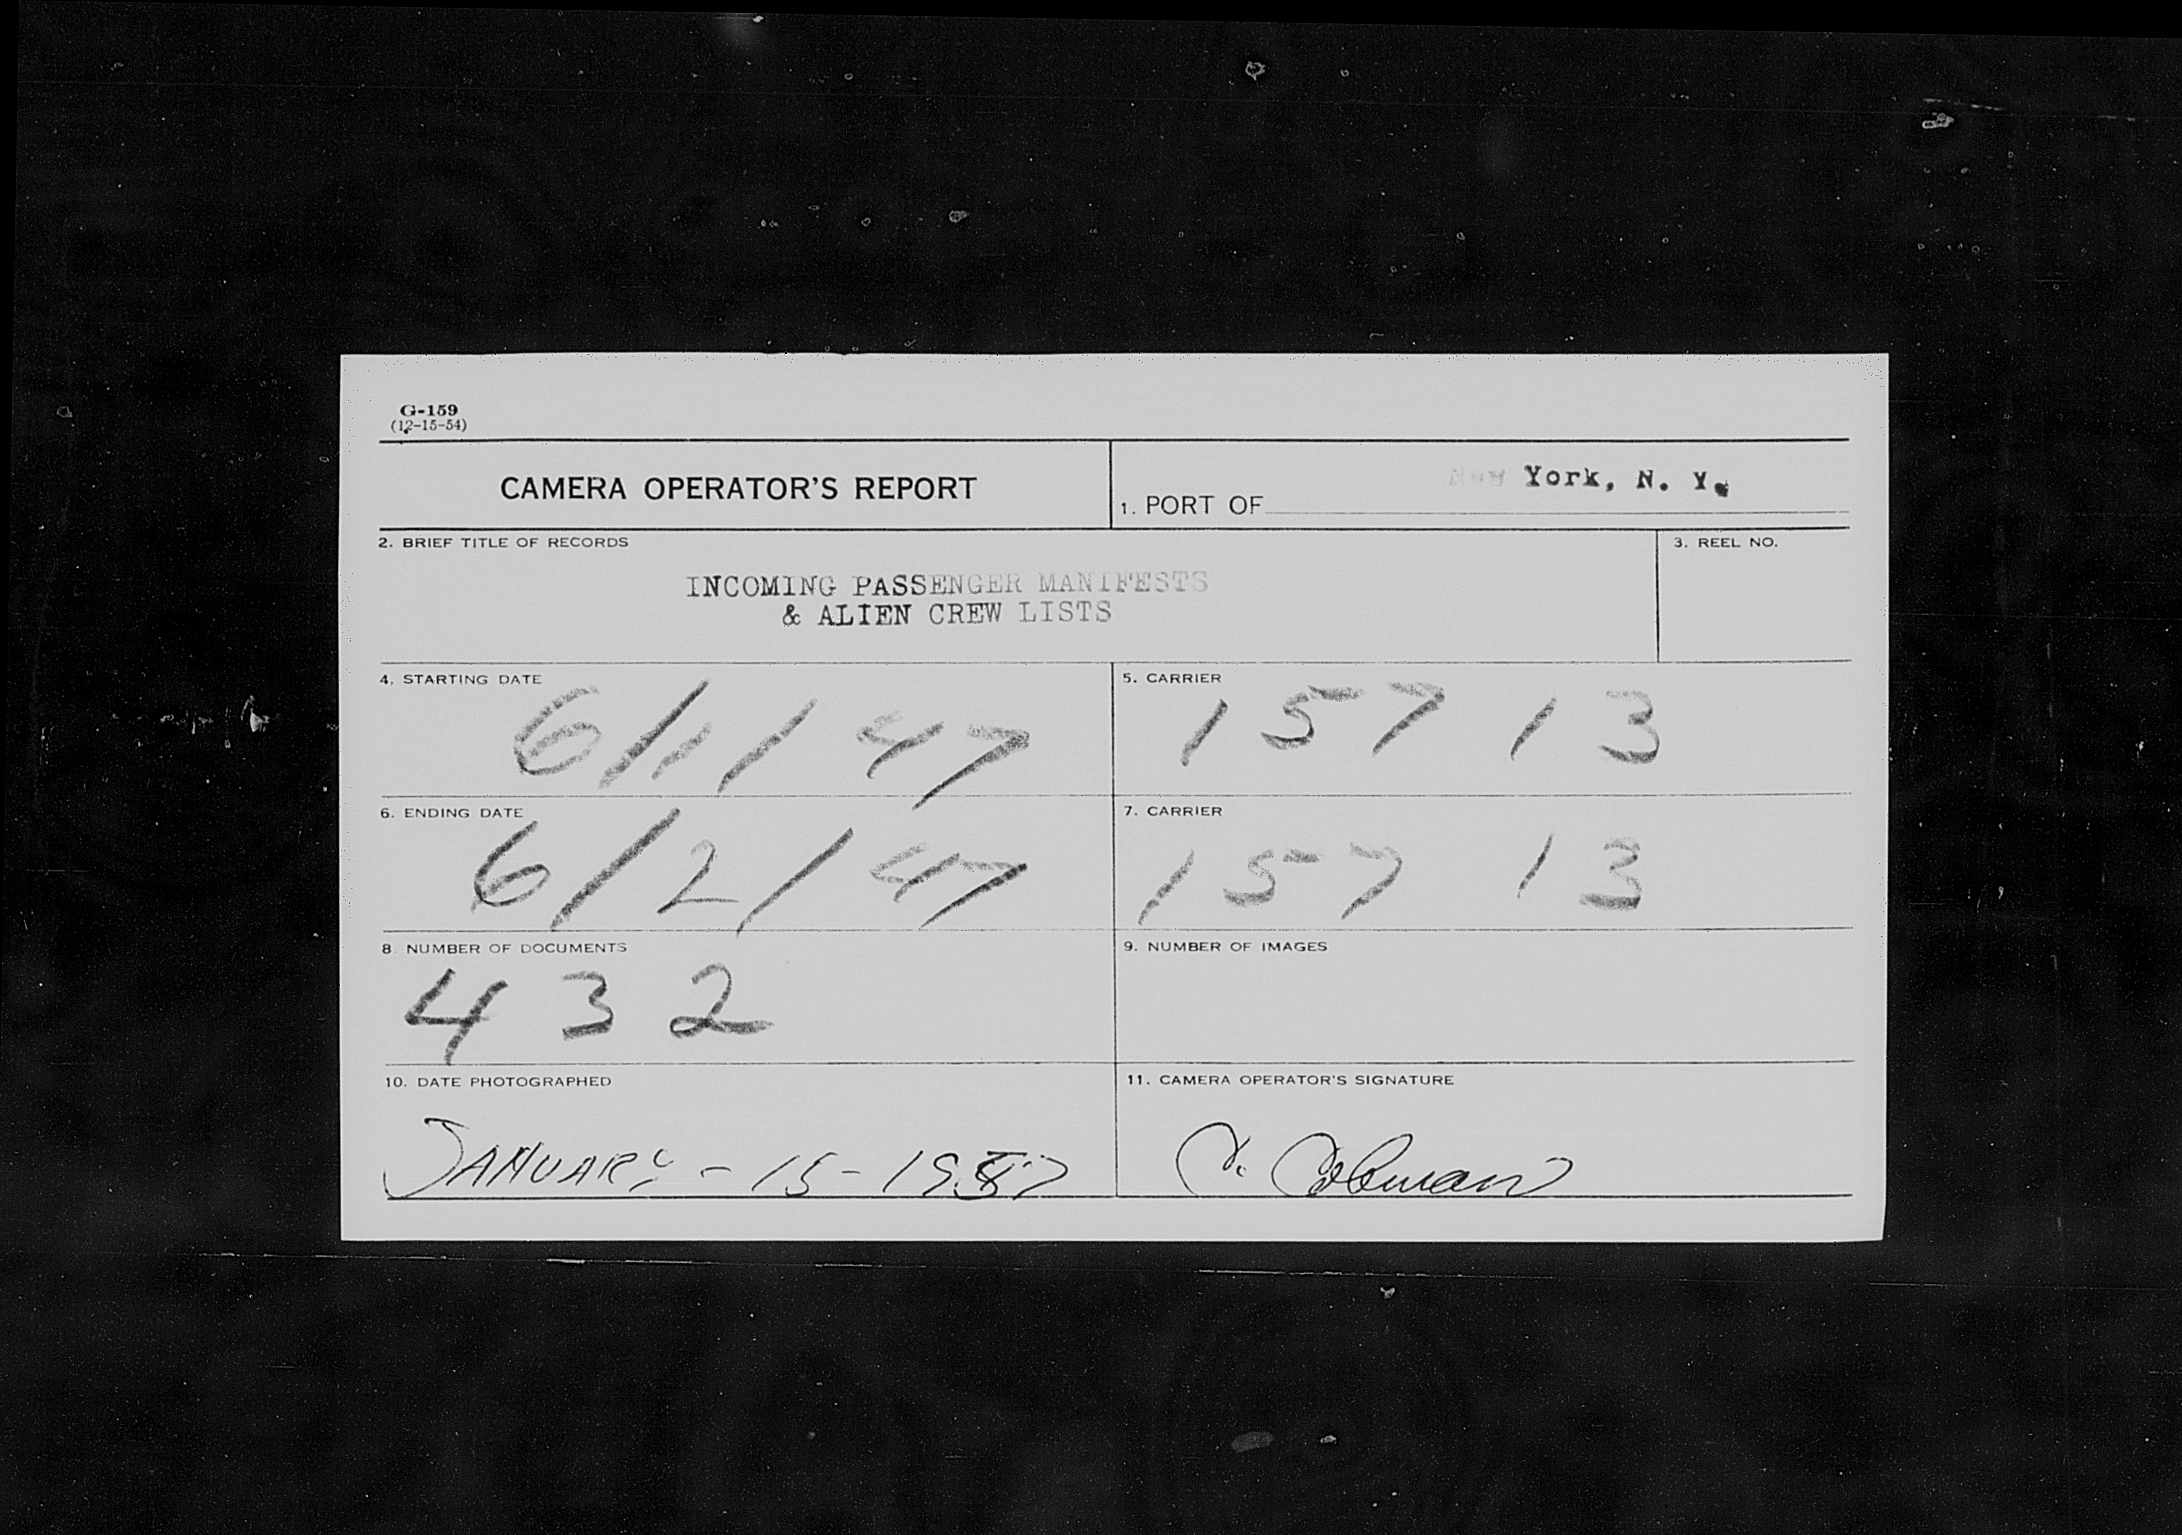 G-159
(12-15-54)
CAMERA OPERATOR'S REPORT
1. PORT OF New York, N. Y.
2. BRIEF TITLE OF RECORDS
INCOMING PASSENGER MANIFESTS
& ALIEN CREW LISTS
3. REEL NO.
4. STARTING DATE
6/1/47
5. CARRIER
157 13
6. ENDING DATE
6/2/47
7. CARRIER
157 13
8. NUMBER OF DOCUMENTS
432
9. NUMBER OF IMAGES
10. DATE PHOTOGRAPHED
JANUARY - 15 - 1957
11. CAMERA OPERATOR'S SIGNATURE